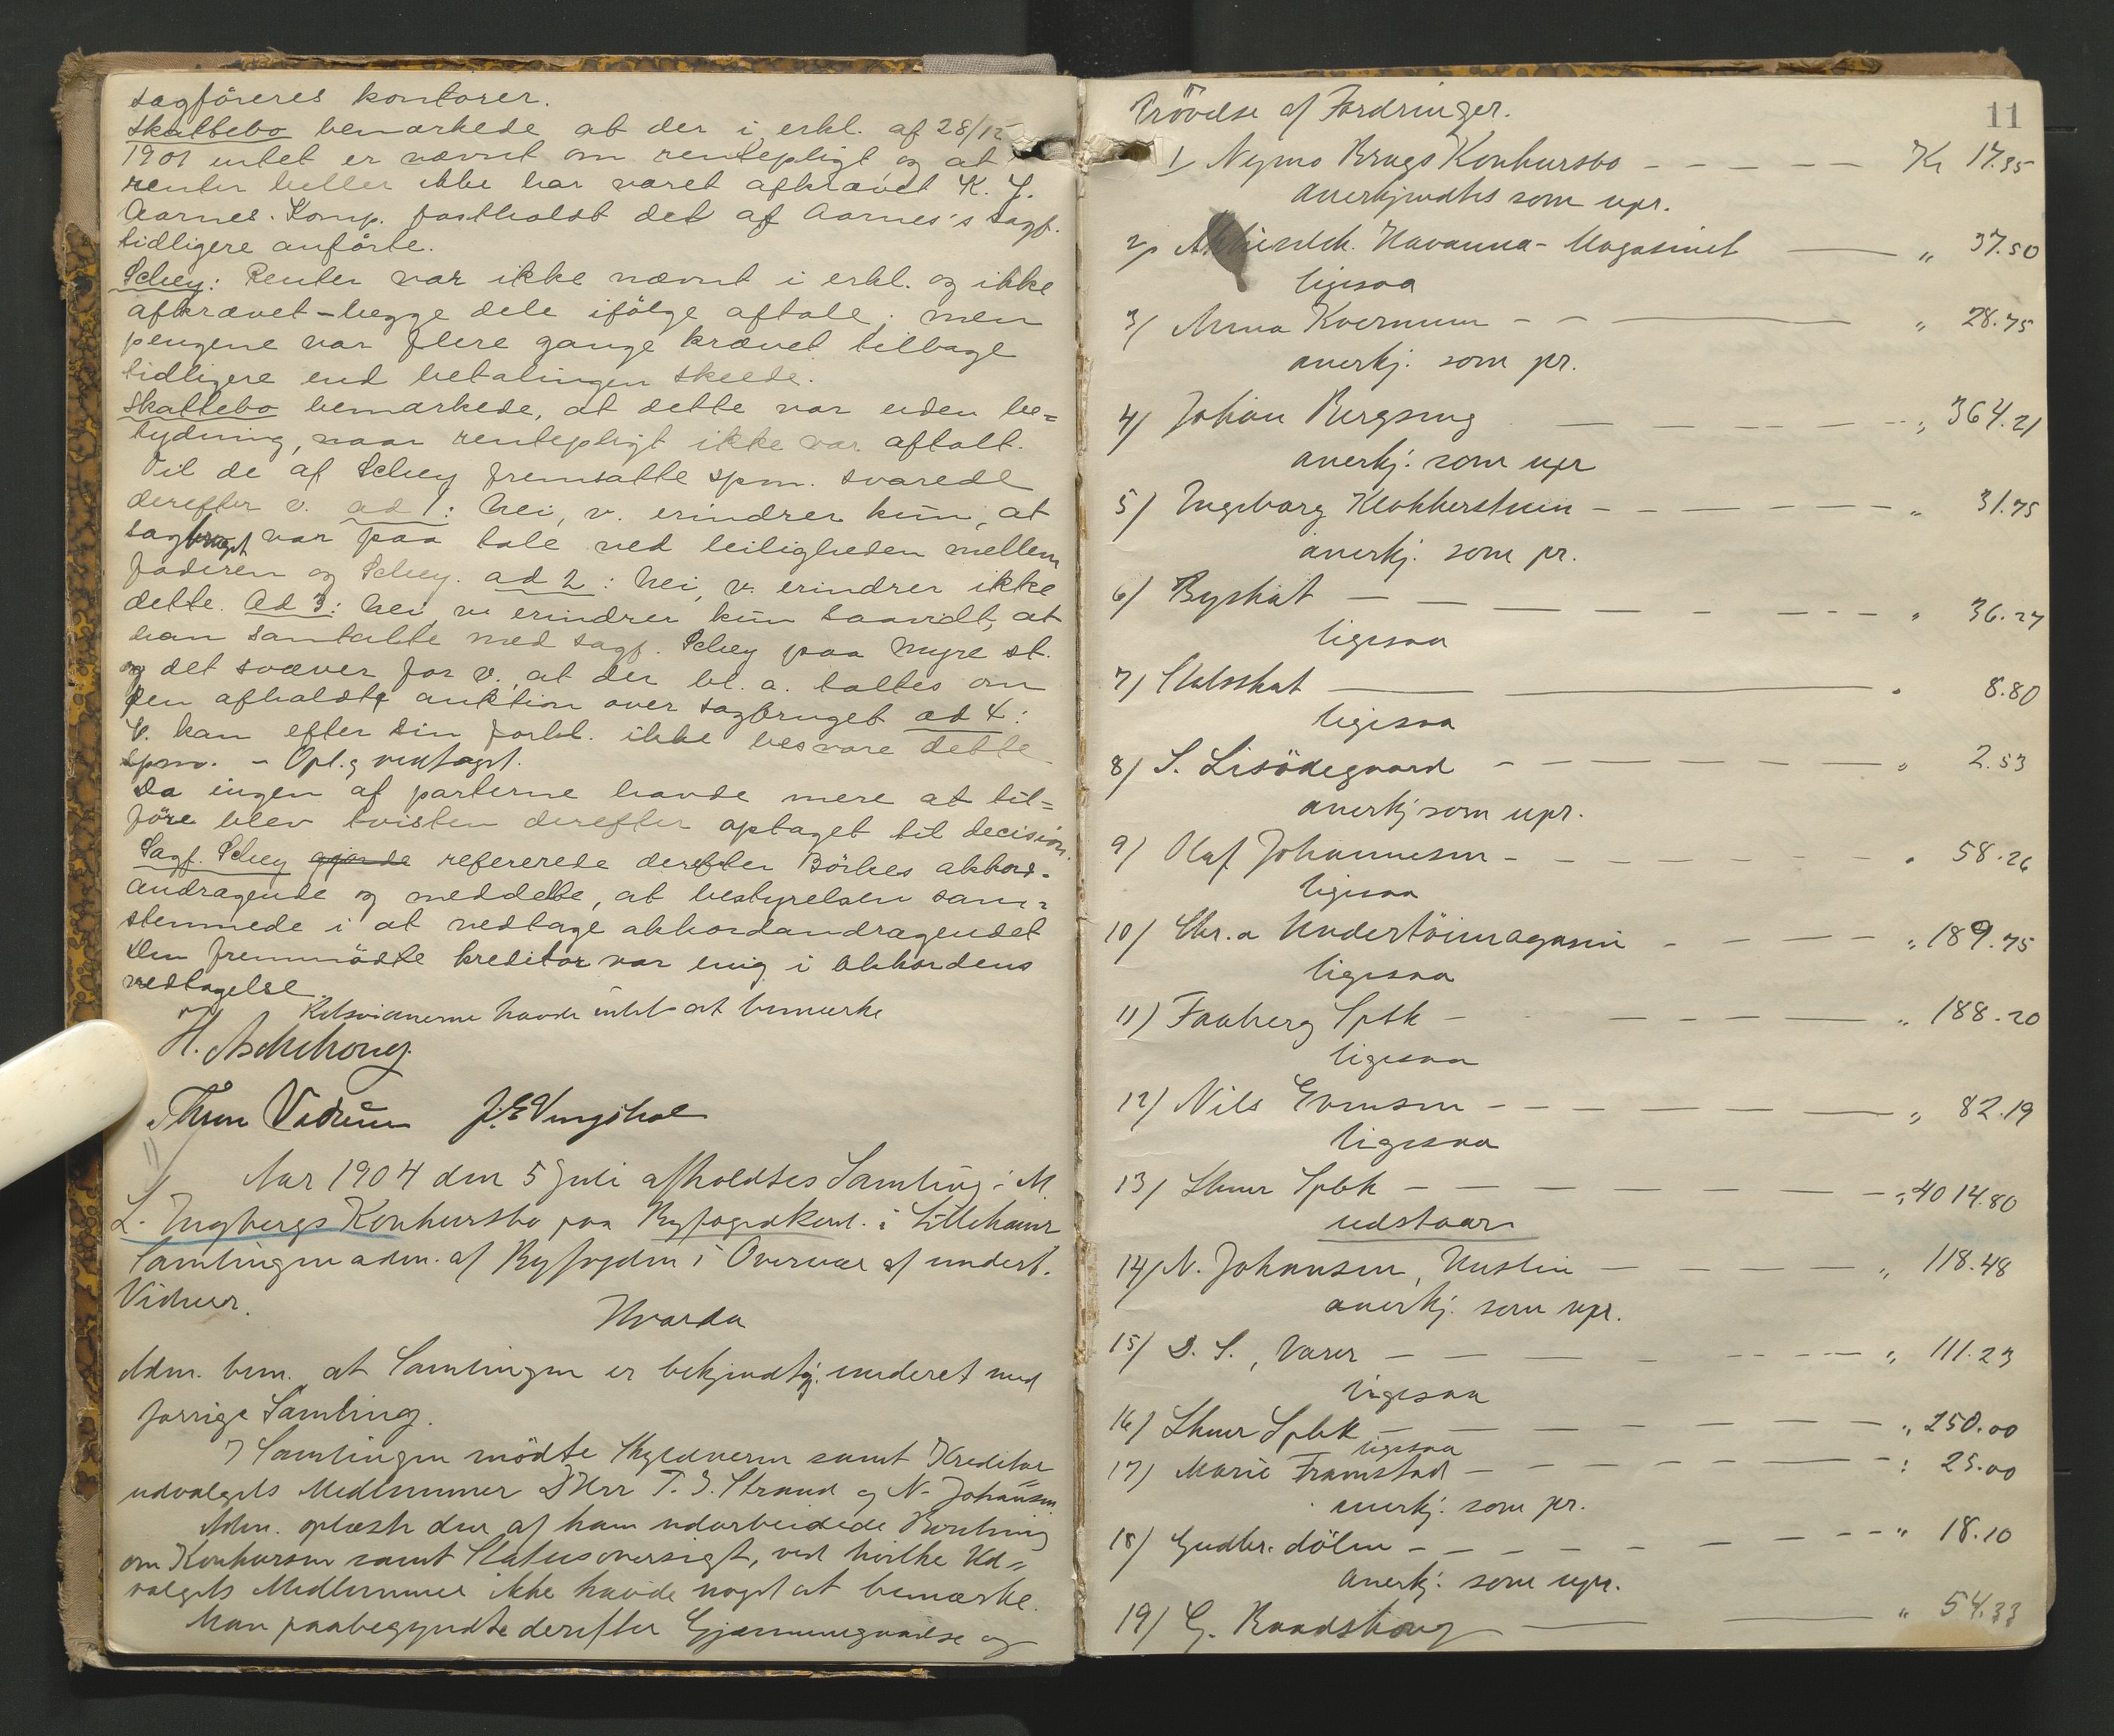 sagföreres kontorer.
Skattebo bemærkede at der i erkl. af 28/12
1901 intet er nævnt om rentepligt og at
renter heller ikke har været afkrævet K. J.
Aarnes. Komp. fastholdt det af Aarnes's sagf.
tidligere anförte.
Schey: Renter var ikke nævnt i erkl. og ikke
afkrævet – begge dele ifölge aftale; men
pengene var flere gange krævet tilbage
tidligere end betalingen skeede.
Skattebo bemærkede, at dette var uden be=
tydning, naar rentepligt ikke var aftalt.
Til de af Schey fremsatte spm. svarede
derefter v. ad 1: Nei, v. erindrer kun, at
sagbruget var paa tale ved leiligheden mellem
faderen og Schey. ad 2: Nei, v. erindrer ikke
dette. Ad 3: Nei, v. erindrer kun saavidt, at
han samtalte med sagf. Schey paa Myre st.
og det svæver for v., at der bl. a. taltes om
den afholdte auktion over sagbruget ad 4:
V. kan efter sin forkl. ikke besvare dette
spm. – Opl. og vedtaget.
Da ingen af parterne havde mere at til=
före blev tvisten derefter optaget til decision.
Sagf. Schey gjorde refererede derefter Börkes akkord-
andragende og meddelte, at bestyrelsen sam=
stemmede i at vedtage akkordandragendet
Den fremmödte kreditor var enig i akkordens
vedtagelse.
Retsvidnerne havde intet at bemærke
H. Aschehoug.
Thron Vedum J. E. Vingshol
Aar 1904 den 5 Juli afholdtes Samling i M.
L. Engbergs Konkursbo paa Byfogedkont. i Lillehamr
Samlingen adm. af Byfogden i Overvær af undert.
Vidner.
Hvorda
Adm. bem. at Samlingen er bekjendtgj. underet med
forrige Samling.
I Samlingen mödte Skyldneren samt Kreditor
udvalgets Medlemmer DHrr T. G. Strand og N. Johansen
Adm. oplæste den af ham udarbeidede Beretning
om Konkursen samt Statusoversigt, ved hvilke Ud=
valgets Medlemmer ikke havde noget at bemærke.
Man paabegyndte derefter Gjennemgaaelse og
11
Prövelse af Fordringer.
1/ Nymo Brugs Konkursbo – – – – – Kr 17.35
anerkjendtes som upr.
2/ Havanna-Magasinet — " 37.50
ligesaa
3/ Anna Kvernum – – — " 28.75
anerkj. som pr.
4/ Johan Bergseng — — — — – " 364.21
anerkj. som upr
5/ Ingeborg Klokkerstuen – – – – – – " 31.75
anerkj. som pr.
6/ Byskat — — — — — – – – " 36.27
ligesaa
7/ Statsskat — — " 8.80
ligesaa
8/ S. Lisödegaard – – — — — — — " 2.53
anerkj som upr.
9/ Olaf Johannesen – – – – – – – " 58.26
ligesaa
10/ Chr.a Undertöimagasin – – — — " 189.75
ligesaa
11/ Faaberg Spbk – – — — — " 188.20
ligesaa
12/ Nils Evensen – – – — — — — " 82.19
ligesaa
13/ Lhmr Spbk – — — — — — — " 4014.80
udstaar
14/ N. Johansen, Husleie — — — — — " 118.48
anerkj. som upr.
15/ D. S., Varer – — — – – – – — " 111.23
ligesaa
16/ Lhmr Spbk — — — — — – " 250.00
ligesaa
17/ Marie Framstad – — — — – – – : 25.00
anerkj. som pr.
18/ Gudbr.dölen – – – – – – — – – " 18.10
anerkj. som upr.
19/ G. Raadshoug — — " 54.33